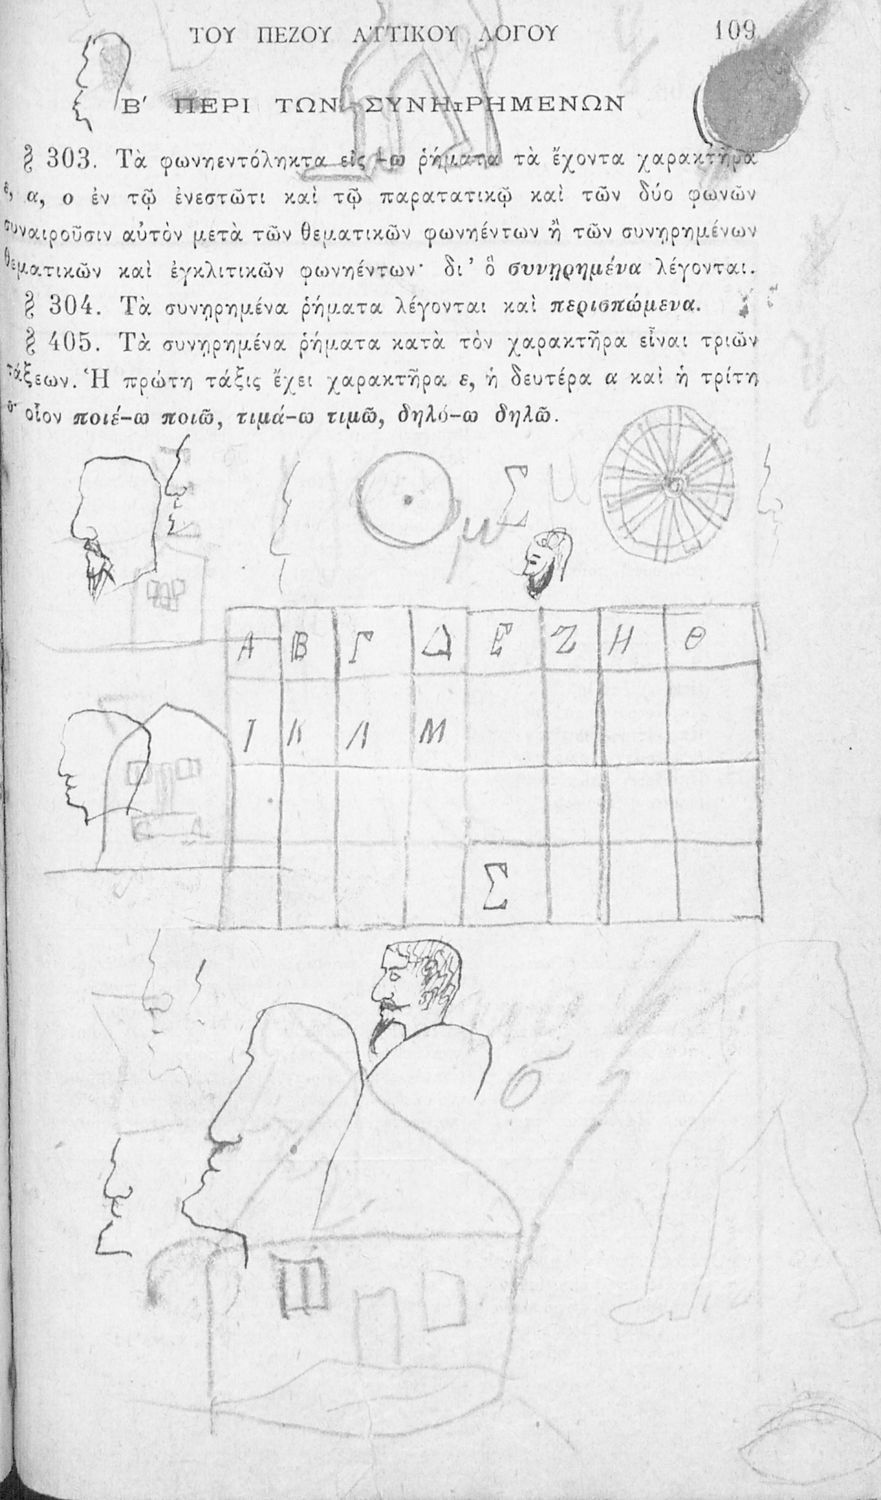 ΤΟΥ ΠΕΖΟΥ ΑΤΤΙΚΟΥ ΛΟΓΟΥ 109
Β΄ ΠΕΡΙ ΤΩΝ ΣΥΝΗιΡΗΜΕΝΩΝ
§ 303. Τὰ φωνηεντόληκτα εἰς -ω ῥήματα τὰ ἔχοντα χαρακτῆρα
ε, α, ο ἐν τῷ ἐνεστῶτι καὶ τῷ παρατατικῷ καὶ τῶν δύο φωνῶν
συναιροῦσιν αὐτὸν μετὰ τῶν θεματικῶν φωνηέντων ἢ τῶν συνῃρημένων
θεματικῶν καὶ ἐγκλιτικῶν φωνηέντων· δι’ ὃ συνῃρημένα λέγονται.
§ 304. Τὰ συνῃρημένα ῥήματα λέγονται καὶ περισπώμενα.
§ 405. Τὰ συνῃρημένα ῥήματα κατὰ τὸν χαρακτῆρα εἶναι τριῶν
τάξεων. Ἡ πρώτη τάξις ἔχει χαρακτῆρα ε, ἡ δευτέρα α καὶ ἡ τρίτη
ο· οἷον ποιέ-ω ποιῶ, τιμά-ω τιμῶ, δηλό-ω δηλῶ.
μ Σ μ
Α Β Γ Δ Ε Ζ Η Θ
Ι Κ Λ Μ
Σ
σ